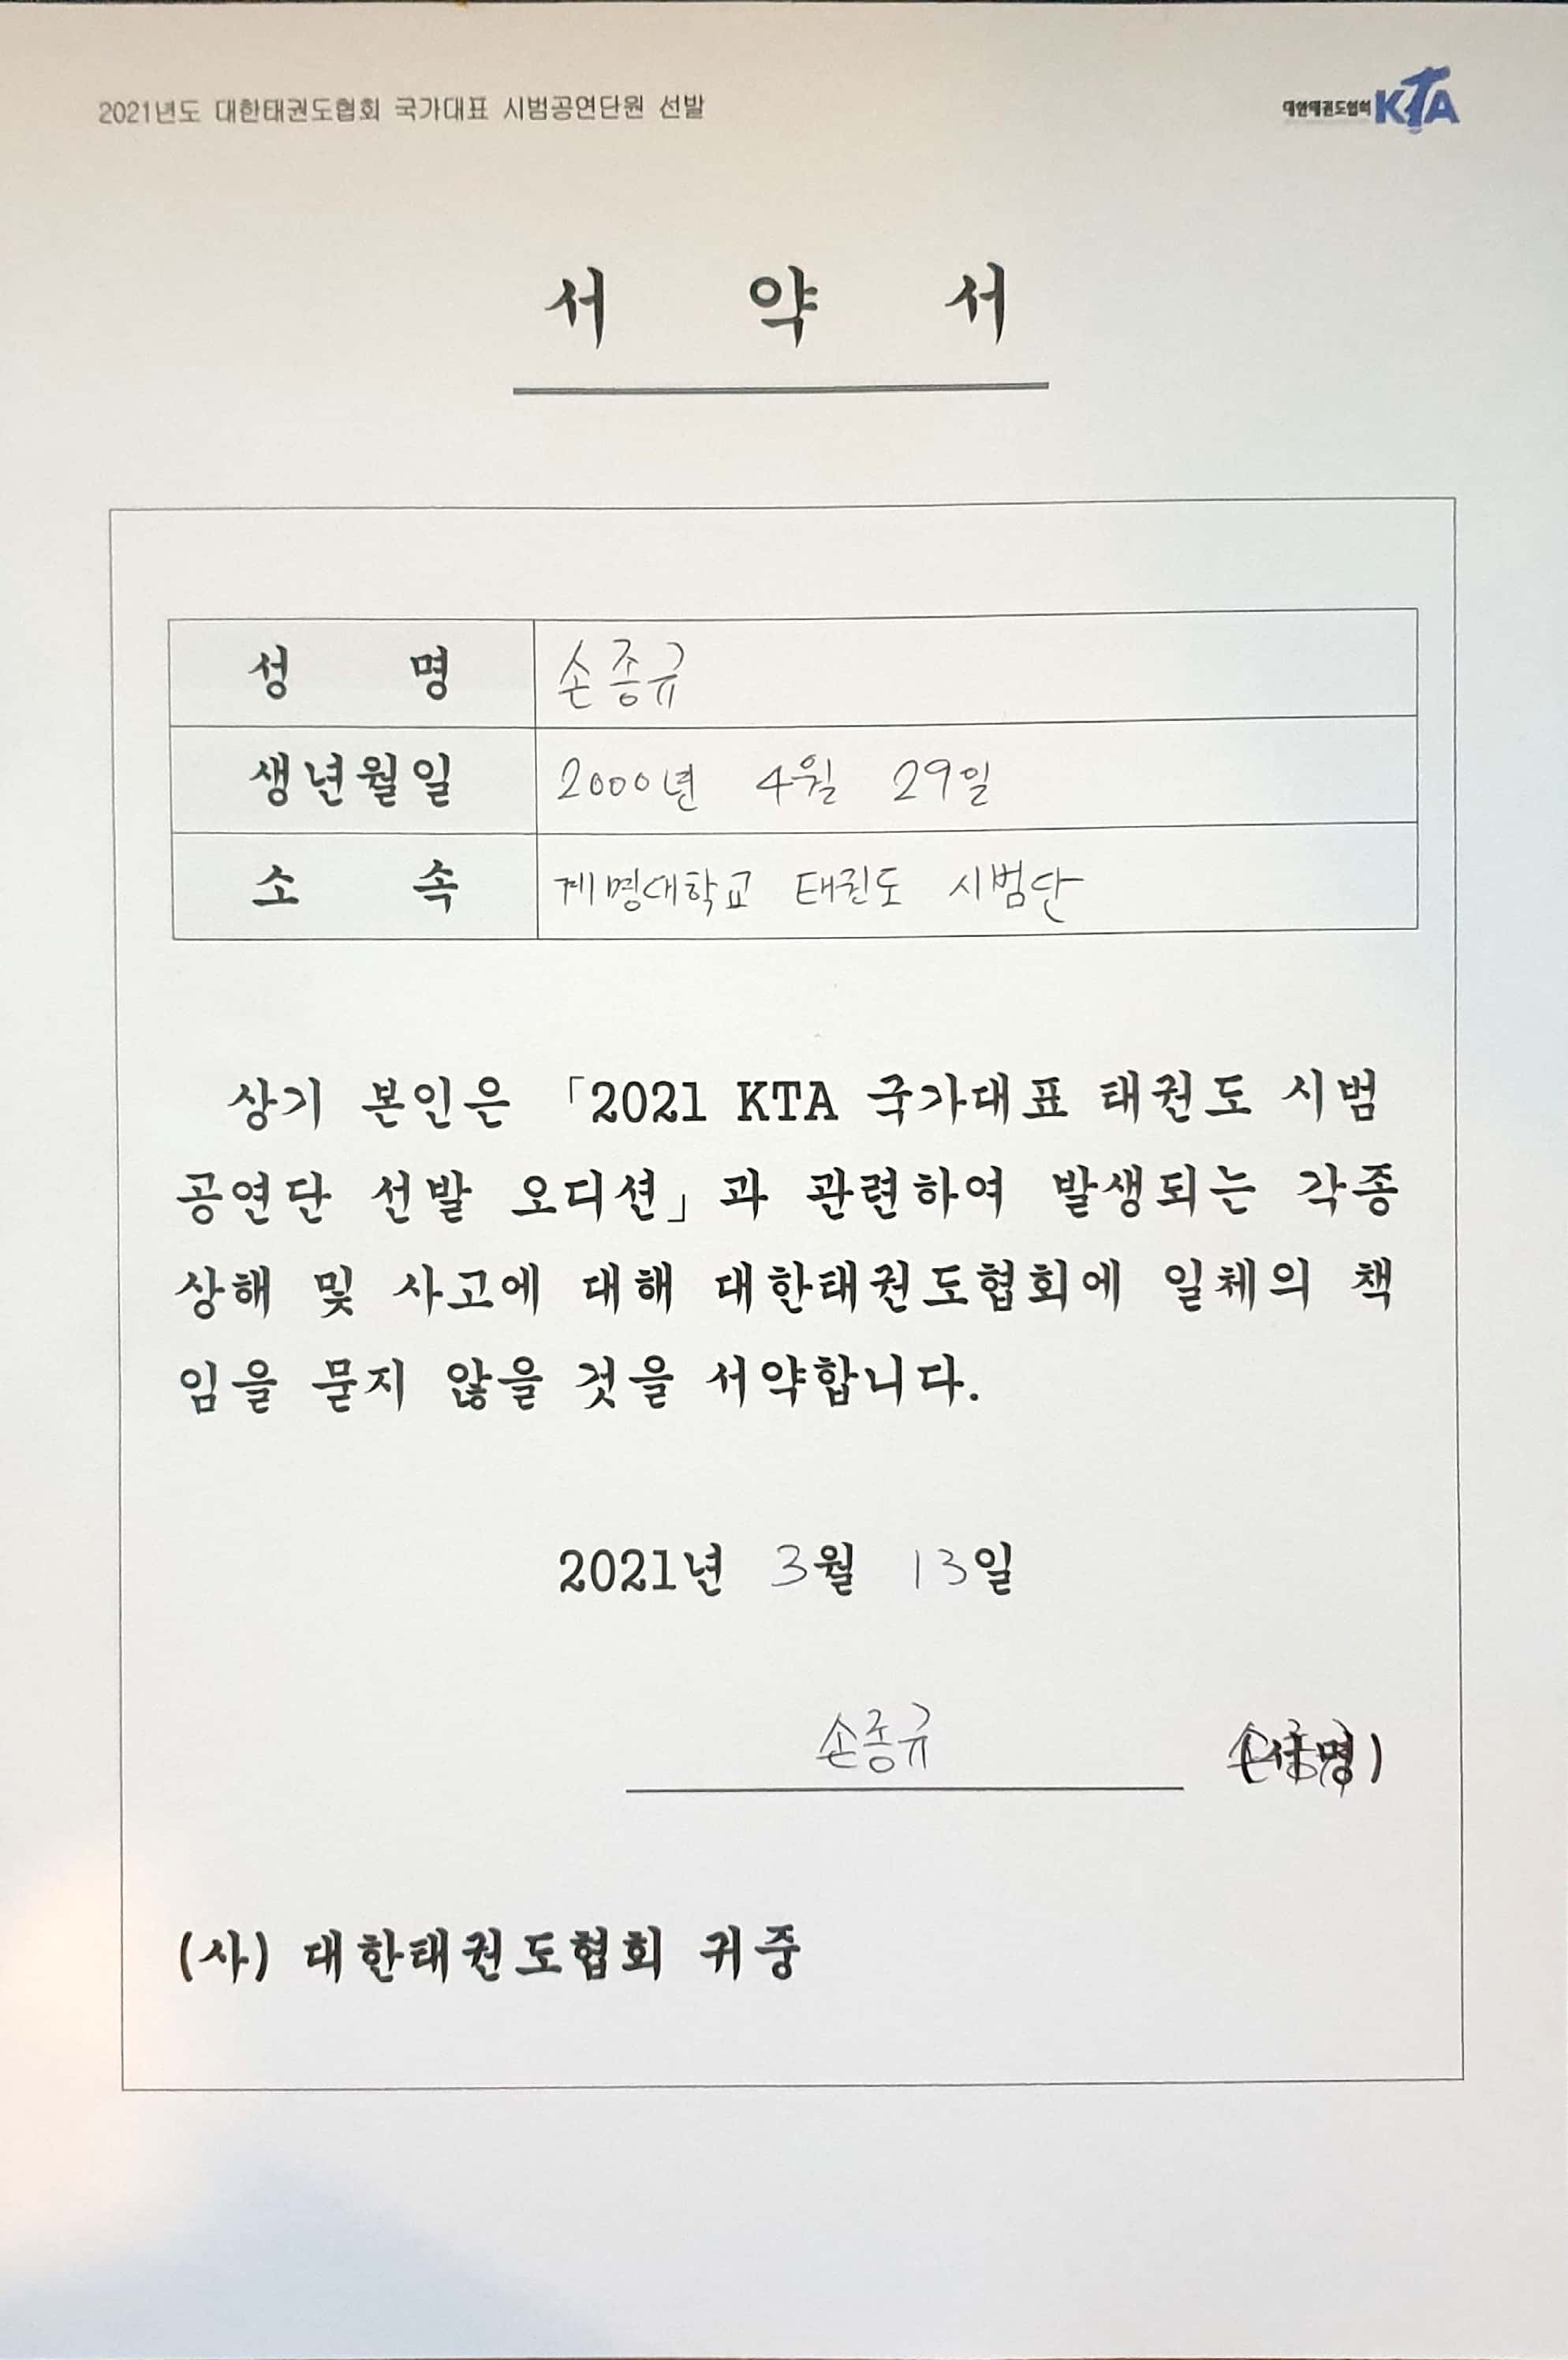 2021년도 대한태권도협회 국가대표 시범공연단원 선발
대한태권도협회 KTA
서 약 서
성 명 손종규
생년월일 2000년 4월 29일
소 속 계명대학교 태권도 시범단
상기 본인은 「2021 KTA 국가대표 태권도 시범
공연단 선발 오디션」과 관련하여 발생되는 각종
상해 및 사고에 대해 대한태권도협회에 일체의 책
임을 묻지 않을 것을 서약합니다.
2021년 3월 13일
손종규 (서명) 손종규
(사) 대한태권도협회 귀중